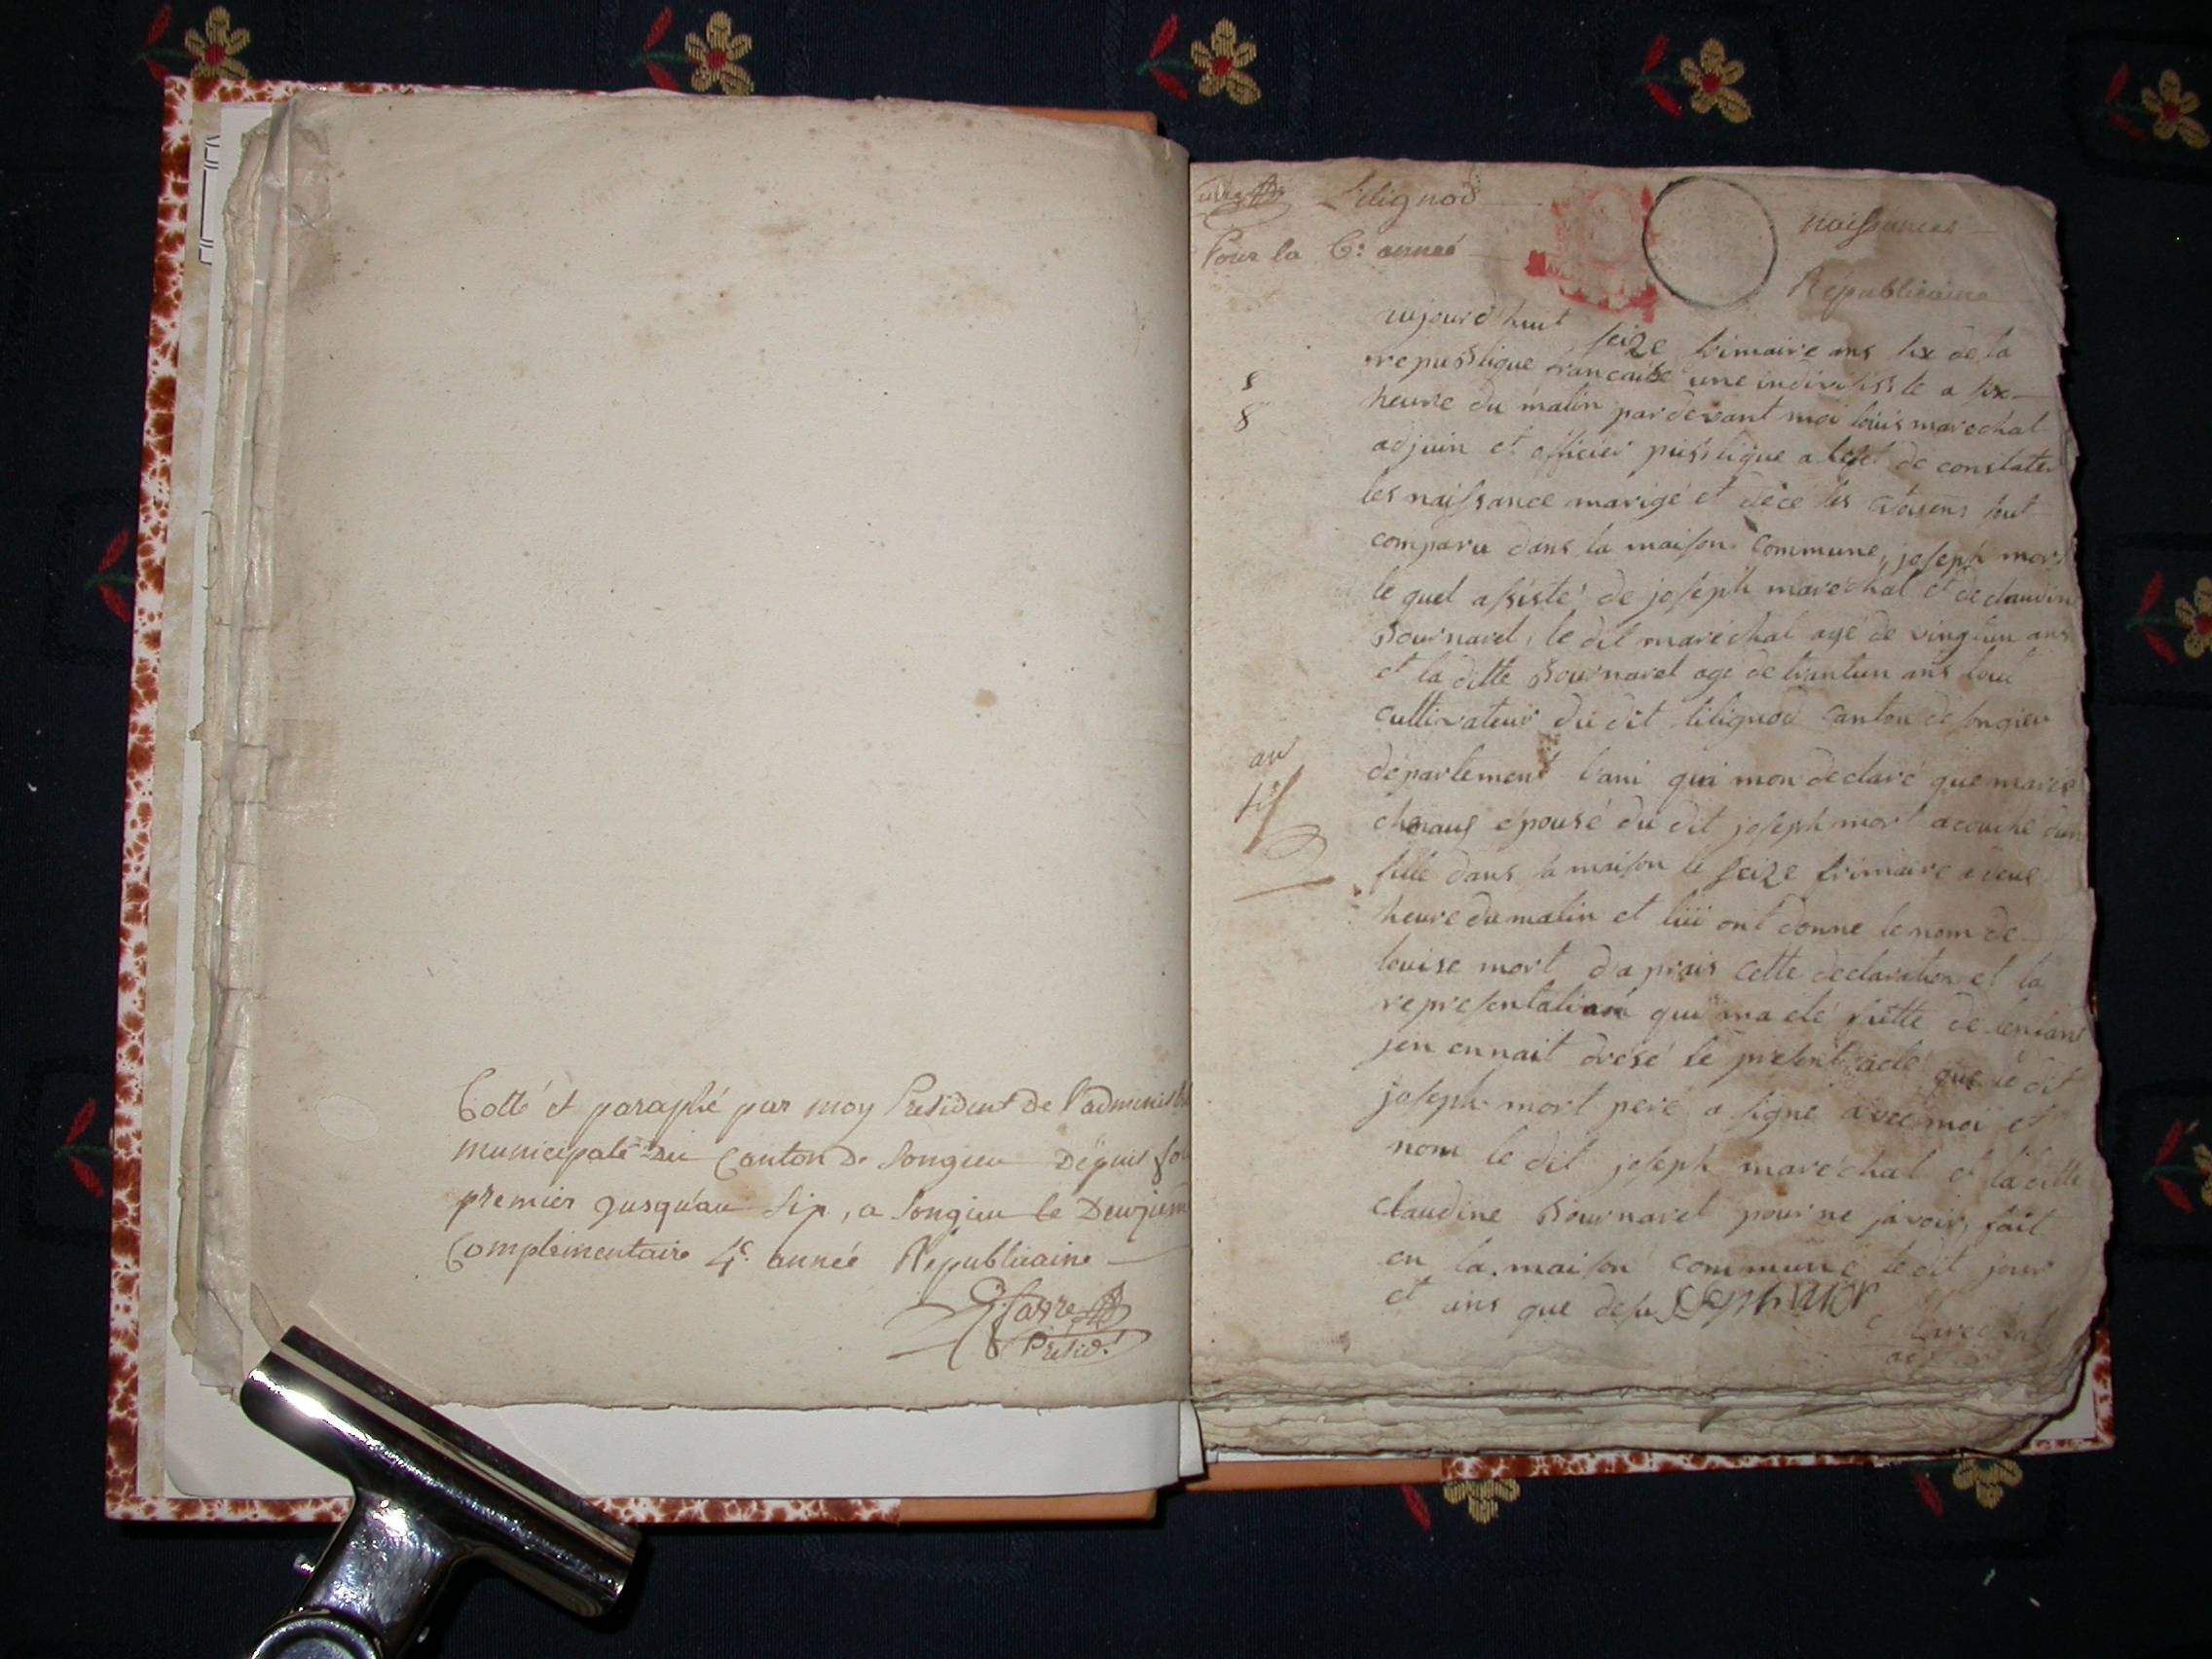 Cotté et paraphé par moy President de l'administ
municipale du Canton de Songieu Depuis fol
premier jusqu'au Six, a Songieu le Deuxiem
Complementaire 4e. année Republicaine
Presid.t
Lilignod
naissances
Pour la 6e. année
Republicaine
aujourd huit seize frimaire ans six de la
repusblique francaise une indivisisble a six
heure du matin pardevant moi louis marechal
adjuin et officier pusblique a lefet de constater
les naissance marigé et décé des citoiens hut
comparu dans la maison commune, joseph mort
le quel assisté de joseph maréchal et de claudine
Bournaret, le dit maréchal agé de vingtun ans
et la ditte Bournaret agé de trantun ans tout
cultivateur du dit lilignod canton de songieu
département l'ain qui mon declaré que marie
épousé du dit joseph mort acouché dun
fille dans sa maison le seize frimaire a deus
heure du matin et lui ont donne le nom de
louise mort d'aprais cette declaration et la
representation qui ma eté faitte de lenfant
jen ennait drésé le present acte que le dit
joseph mort peré a signe avec moi et
nom le dit joseph maréchal et la ditte
claudine Bournaret pour ne savoir, fait
en la maison commune le dit jour
et ans que desu Joseph mor
Marechal
an
six